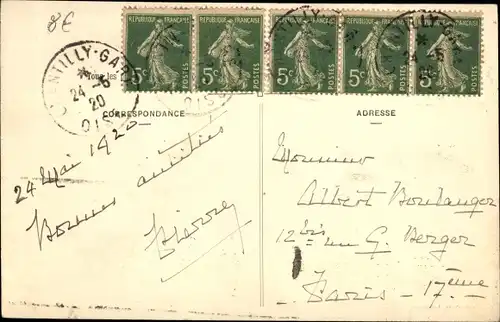 8€
REPUBLIQUE FRANÇAISE REPUBLIQUE FRANÇAISE REPUBLIQUE FRANÇAISE REPUBLIQUE FRANÇAISE REPUBLIQUE FRANÇAISE
5c POSTES 5c POSTES 5c POSTES 5c POSTES 5c POSTES
NTILLY-GA
24-5
20
OIS
Tous les
CORRESPONDANCE
24 Mai 1920
Bonnes amitiés
Pierre
ADRESSE
Monsieur
Albert Boulanger
12 bis rue G. Berger
- Paris - 17ème